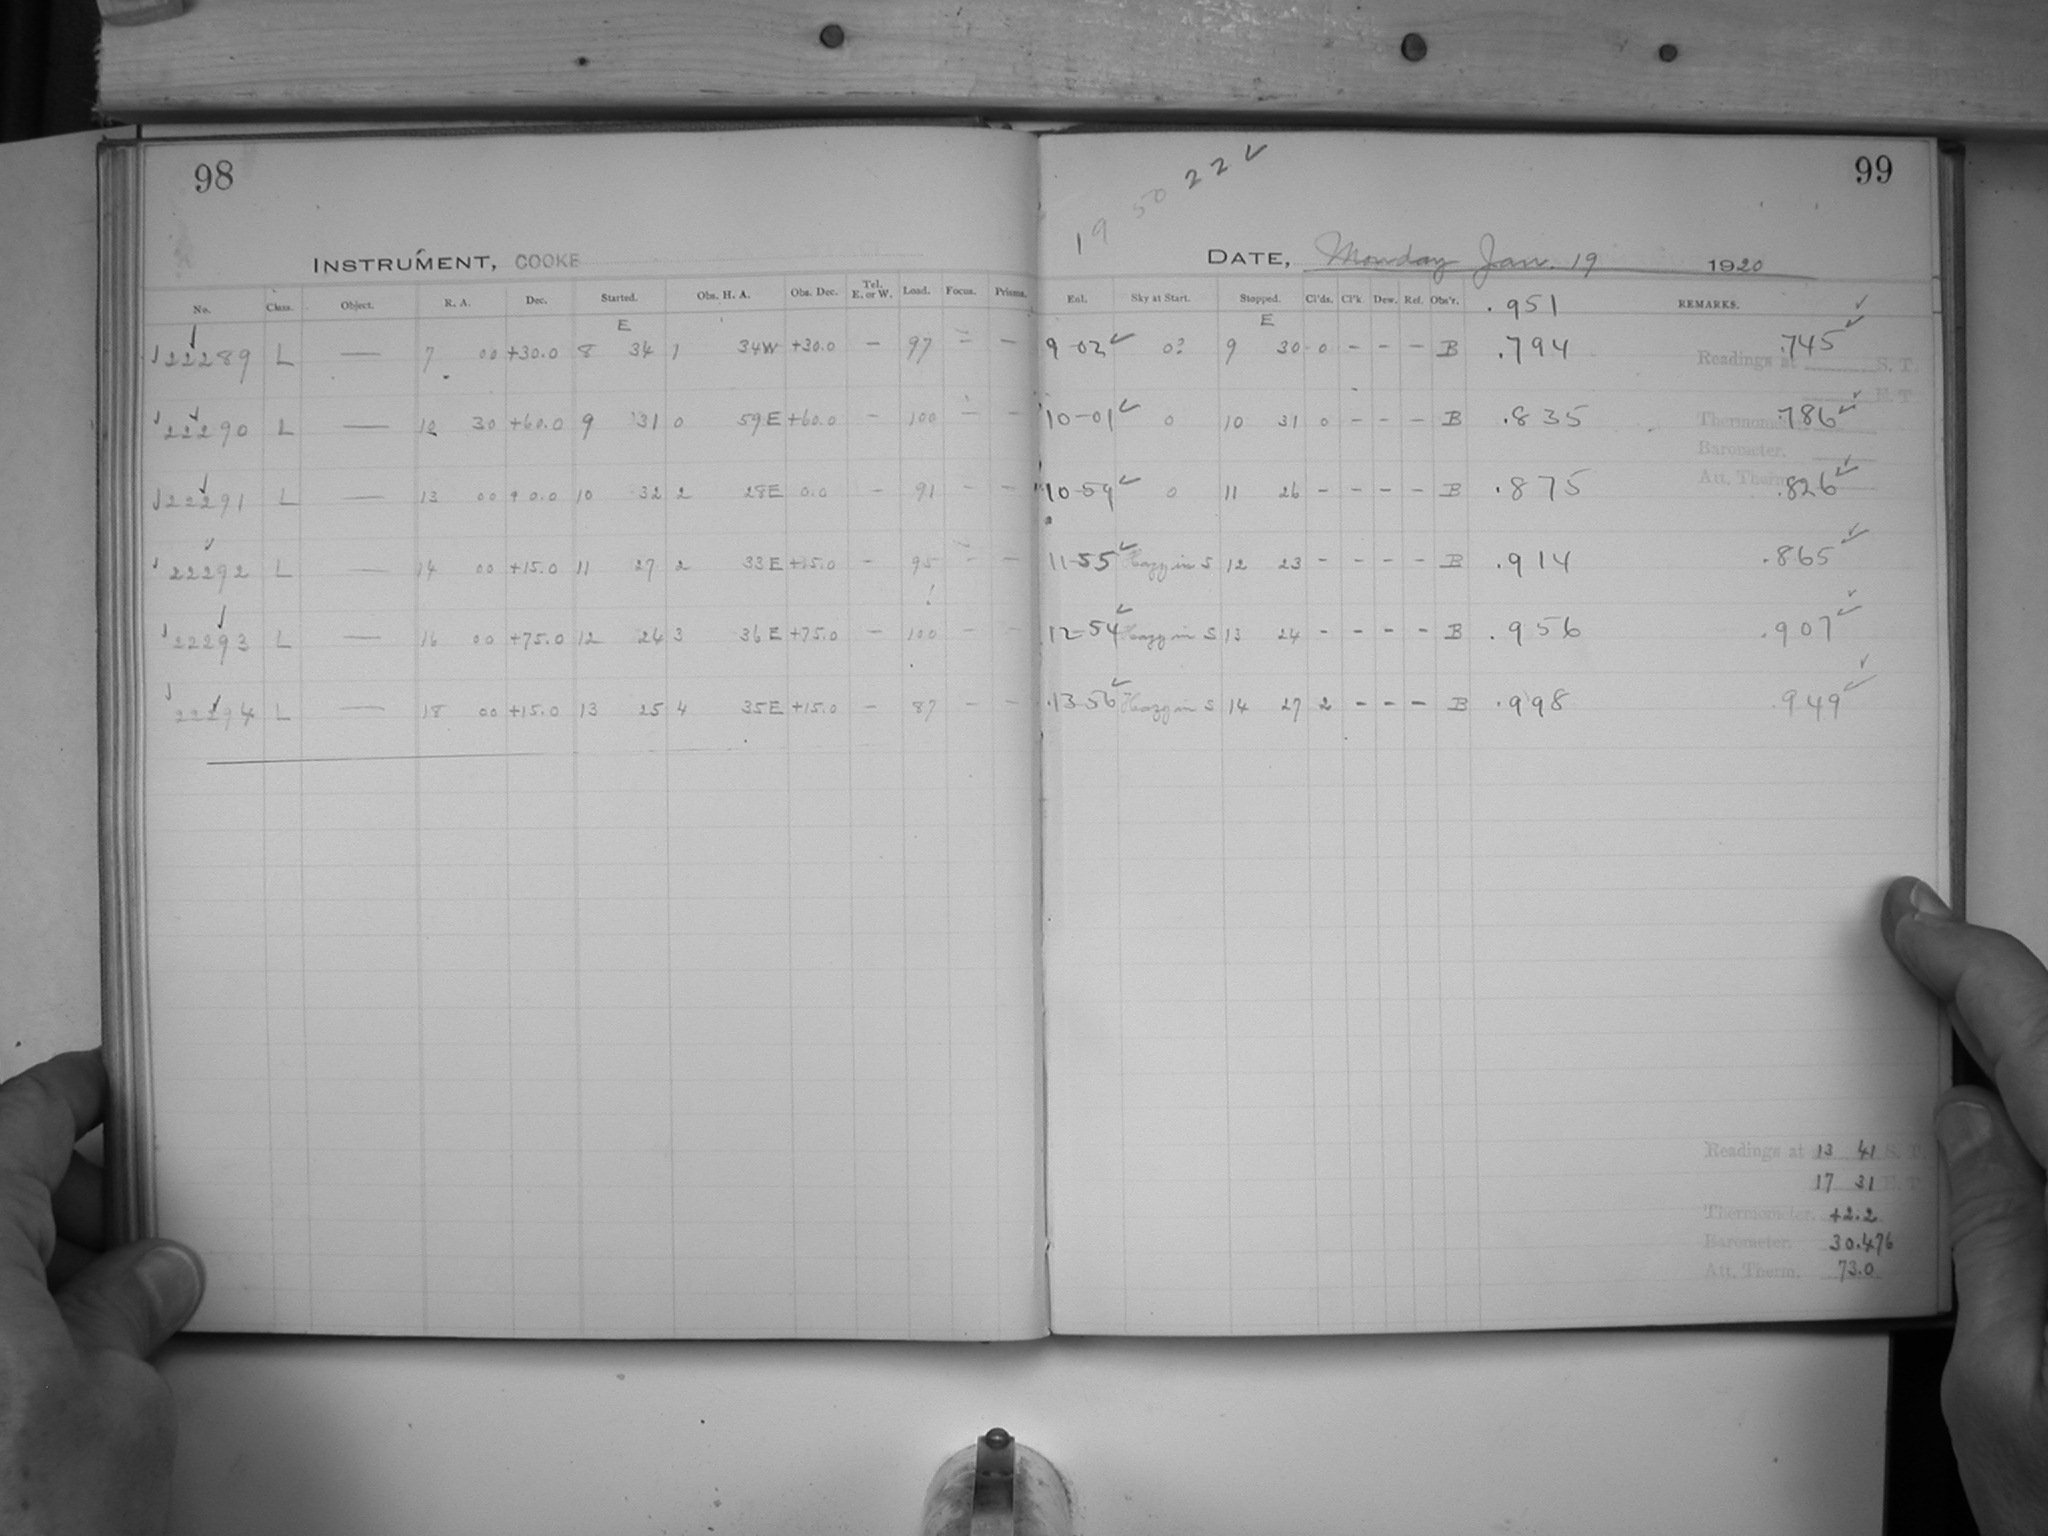 98
INSTRUMENT, COOKE
No. Class. Object. R. A. Dec. Started. Obs. H. A. Obs. Dec. Tel. E. or W. Load. Focus. Prisms.
E
22289 L — 7 00 +30.0 8 34 1 34W +30.0 — 97 — —
22290 L — 10 30 +60.0 9 31 0 59E +60.0 — 100 — —
22291 L — 13 00 0.0 10 32 2 28E 0.0 — 91 — —
22292 L — 14 00 +15.0 11 27 2 33E +15.0 — 95 — —
22293 L — 16 00 +75.0 12 24 3 36E +75.0 — 100 — —
22294 L — 18 00 +15.0 13 25 4 35E +15.0 — 87 — —
99
19 50 22 ✓
DATE, Monday Jan. 19 1920
Enl. Sky at Start. Stopped. Cl'ds. Cl'k. Dew. Ref. Obs'r. .951 REMARKS.
E
9-02 ✓ 0? 9 30 0 - - - B .794 .745 ✓
10-01 ✓ 0 10 31 0 - - - B .835 .786 ✓
10-59 ✓ 0 11 26 - - - - B .875 .826 ✓
11-55 ✓ Hazy in S 12 23 - - - - B .914 .865 ✓
12-54 ✓ Hazy in S 13 24 - - - - B .956 .907 ✓
13-56 ✓ Hazy in S 14 27 2 - - - B .998 .949 ✓
Readings at S. T.
E. T.
Thermometer.
Barometer.
Att. Therm.
Readings at 13 41 S. T.
17 31 E. T.
Thermometer. +2.2
Barometer. 30.476
Att. Therm. 73.0